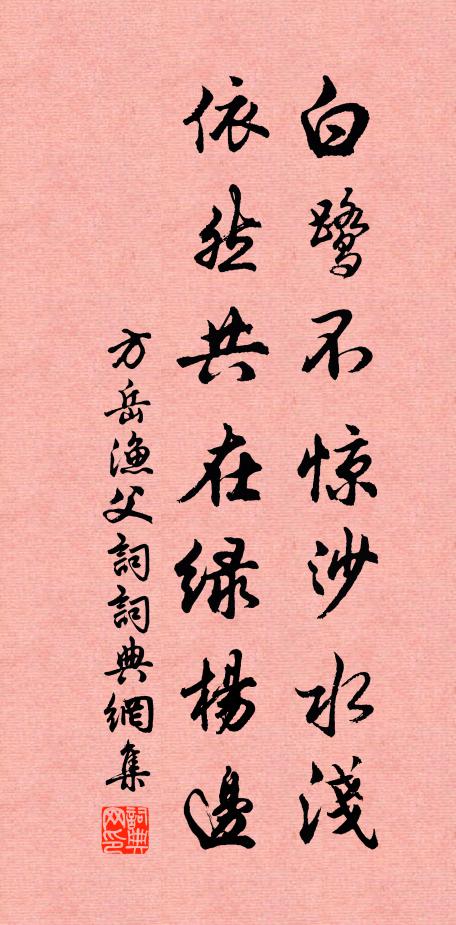 白鹭不惊沙水浅
依然共在绿杨边
方岳渔父詞詞典網集
詞典网印